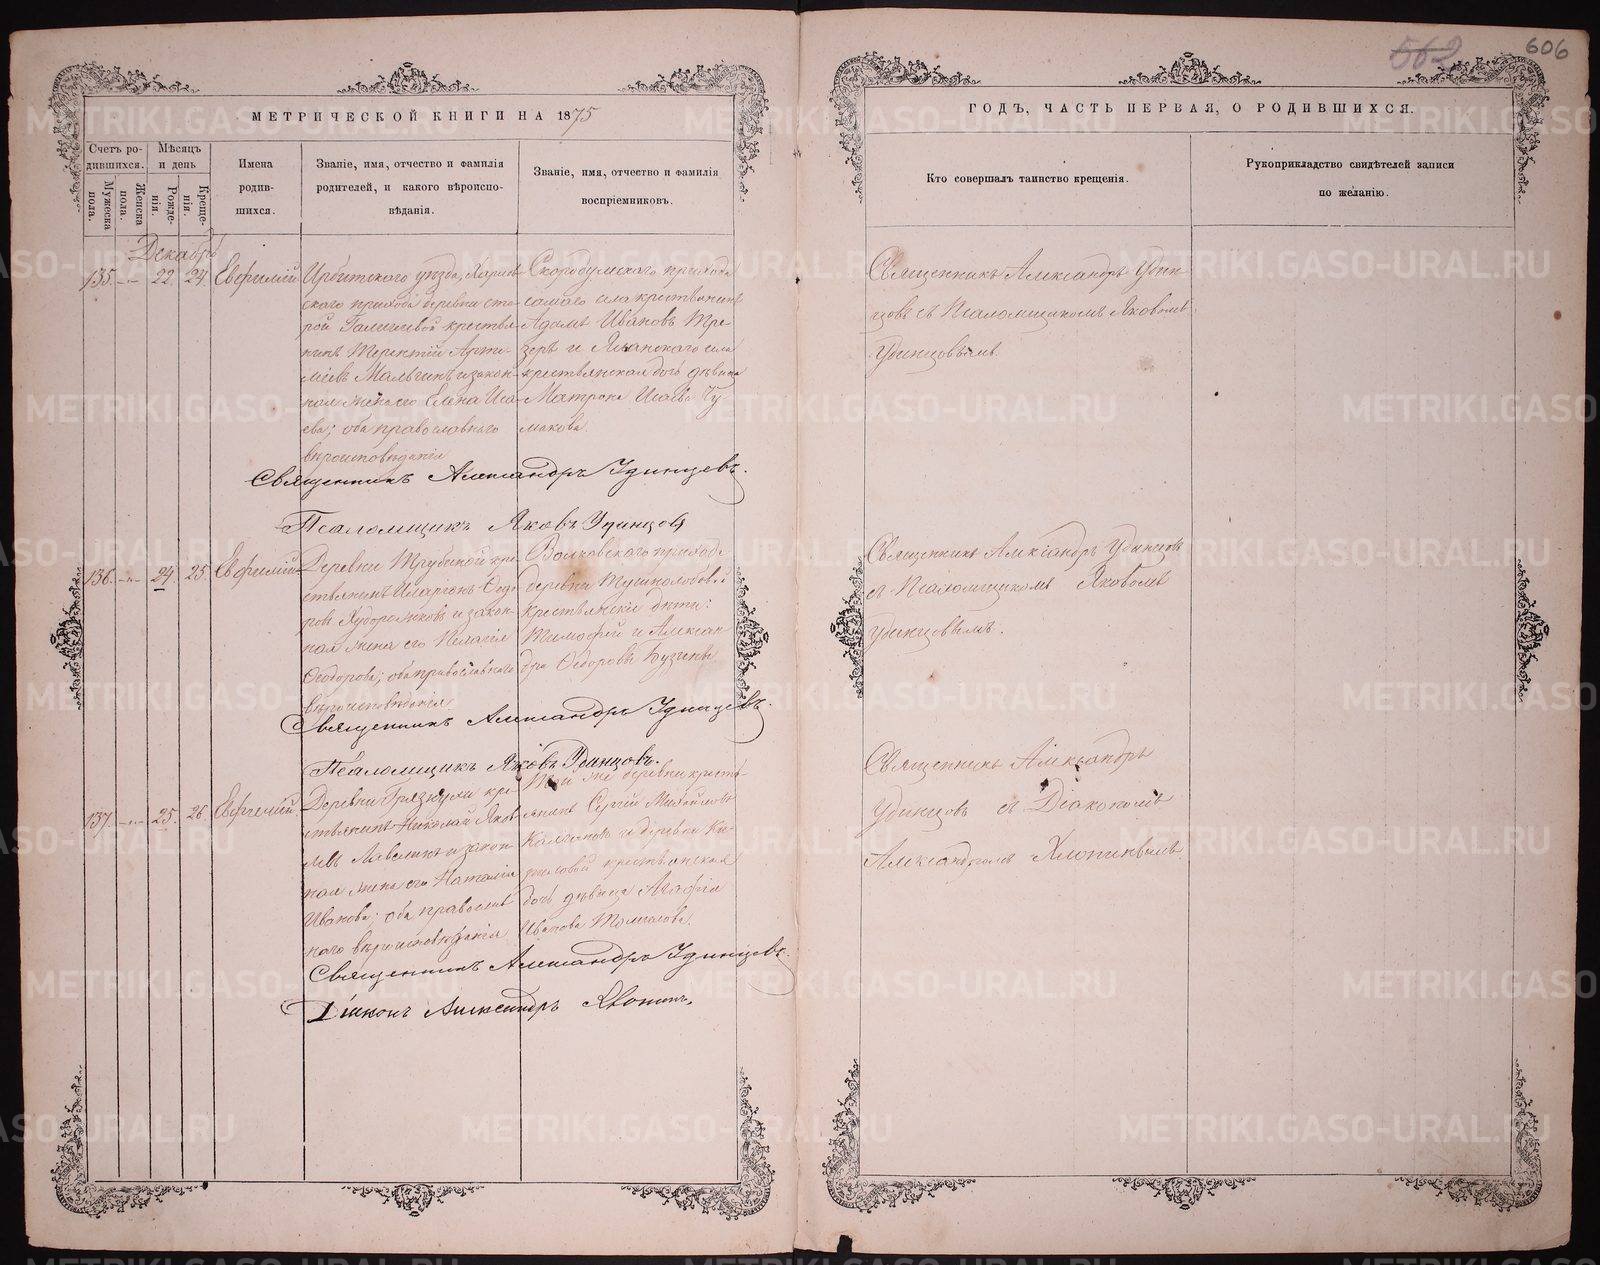 562
606
МЕТРИЧЕСКОЙ КНИГИ НА 1875
ГОДЪ, ЧАСТЬ ПЕРВАЯ, О РОДИВШИХСЯ.
Счетъ ро-
дившихся.
Мѣсяцъ
и день
Мужеска
пола.
Женска
пола.
Рожде-
нія.
Креще-
нія.
Имена
родив-
шихся.
Званіе, имя, отчество и фамилія
родителей, и какого вѣроиспо-
вѣданія.
Званіе, имя, отчество и фамилія
воспріемниковъ.
Кто совершалъ таинство крещенія.
Рукоприкладство свидѣтелей записи
по желанію.
Декабрь
135. 22. 24. Евфимій
Ирбитскаго уѣзда,
скаго прихода деревни ста-
рой Галишевой крестья-
нинъ Терентій Арте-
міевъ Мальгинъ и закон-
ная жена его Елена Иса-
ева; оба православнаго
вѣроисповѣданія
Скородумскаго прихода
самаго села крестьянинъ
Адамъ Ивановъ
и села
крестьянская дочь дѣвица
Матрона Исаева Чу-
макова.
Священникъ Александръ Удин-
цовъ съ Псаломщикомъ Яковомъ
Удинцовымъ.
Священникъ Александръ Удинцевъ.
Псаломщикъ Яковъ Удинцовъ
136. 24. 25. Евфимій
Деревни Трубиной кре-
стьянинъ Иларіонъ Ѳедо-
ровъ Худорожковъ и закон-
ная жена его Пелагія
Ѳеодорова; оба православнаго
вѣроисповѣданія.
Волковскаго прихода
деревни
крестьянскіе дѣти:
Тимофей и Алексан-
дра Ѳедоровы Бузины.
Священникъ Александръ Удинцовъ
съ Псаломщикомъ Яковомъ
Удинцовымъ.
Священникъ Александръ Удинцевъ.
Псаломщикъ Яковъ Удинцовъ.
137. 25. 26. Евгеній.
Деревни Грязнухи кре-
стьянинъ Николай Яков-
левъ и закон-
ная жена его Наталія
Иванова; оба православ-
наго вѣроисповѣданія
Той же деревни кресть-
янинъ Сергій Михайловъ
и деревни Ки-
крестьянская
дочь дѣвица Агафія
Иванова Томилова.
Священникъ Александръ
Удинцовъ съ Діакономъ
Александромъ Хлопинымъ.
Священникъ Александръ Удинцевъ.
Діаконъ Александръ Хлопинъ.
METRIKI.GASO-URAL.RU